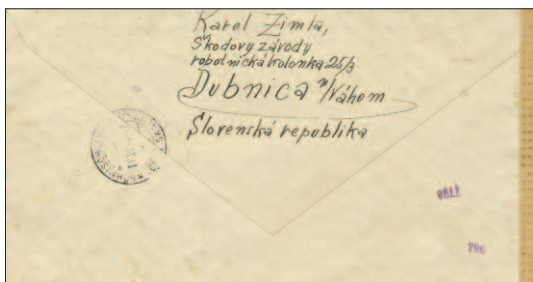 Karel Zimla,
Škodovy závody
robotnická kolonka 25/3
Dubnica n/Váhom
Slovenská republika
796